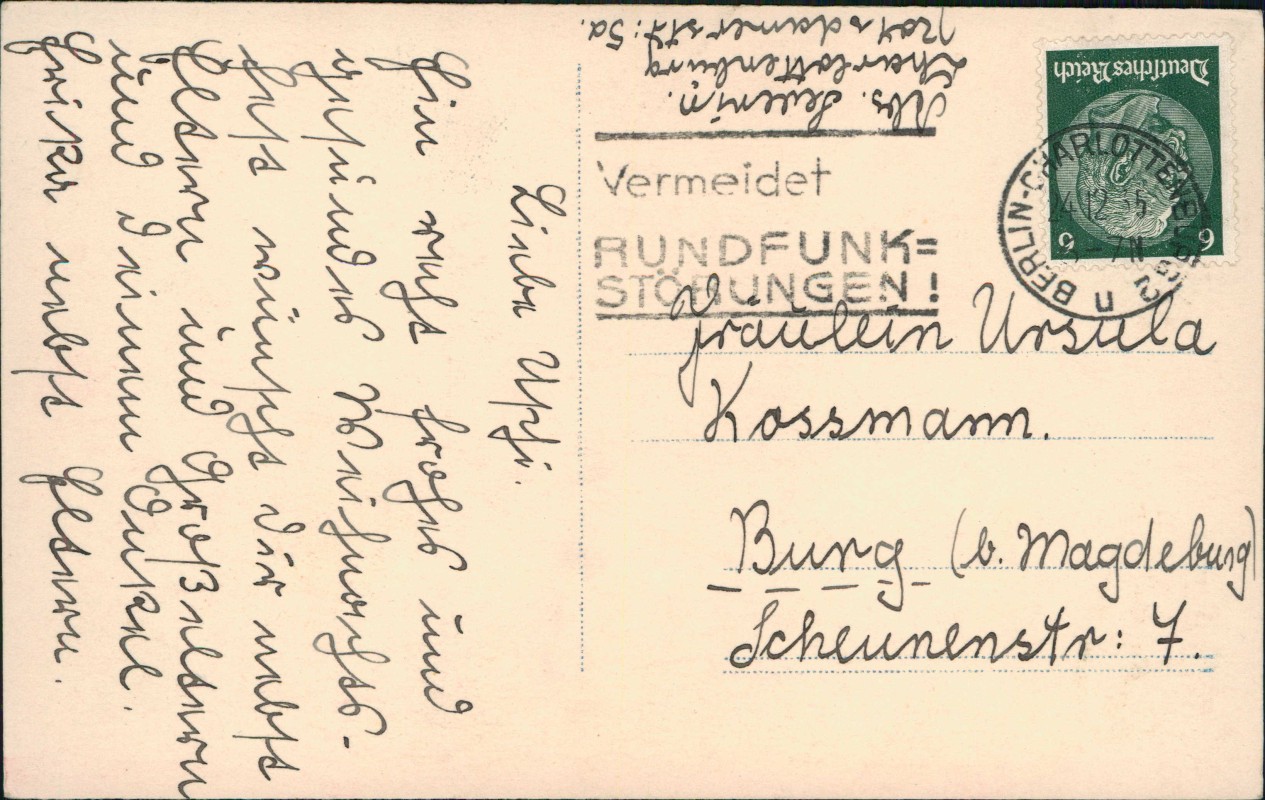 Liebe Uschi.
Ein recht frohes und
gesundes Weihnachts-
fest wünscht Dir nebst
Eltern und Großeltern
und deinem Onkel.
nebst Eltern.
Abs. Severin.
Charlottenburg
Potsdamerstr: 5a.
Vermeidet
RUNDFUNK=
STÖRUNGEN!
Deutsches Reich
6 6
BERLIN-CHARLOTTENBURG 2
24.12.35
-7N
n
Fräulein Ursula
Kossmann.
Burg (b. Magdeburg)
Scheunenstr: 7.